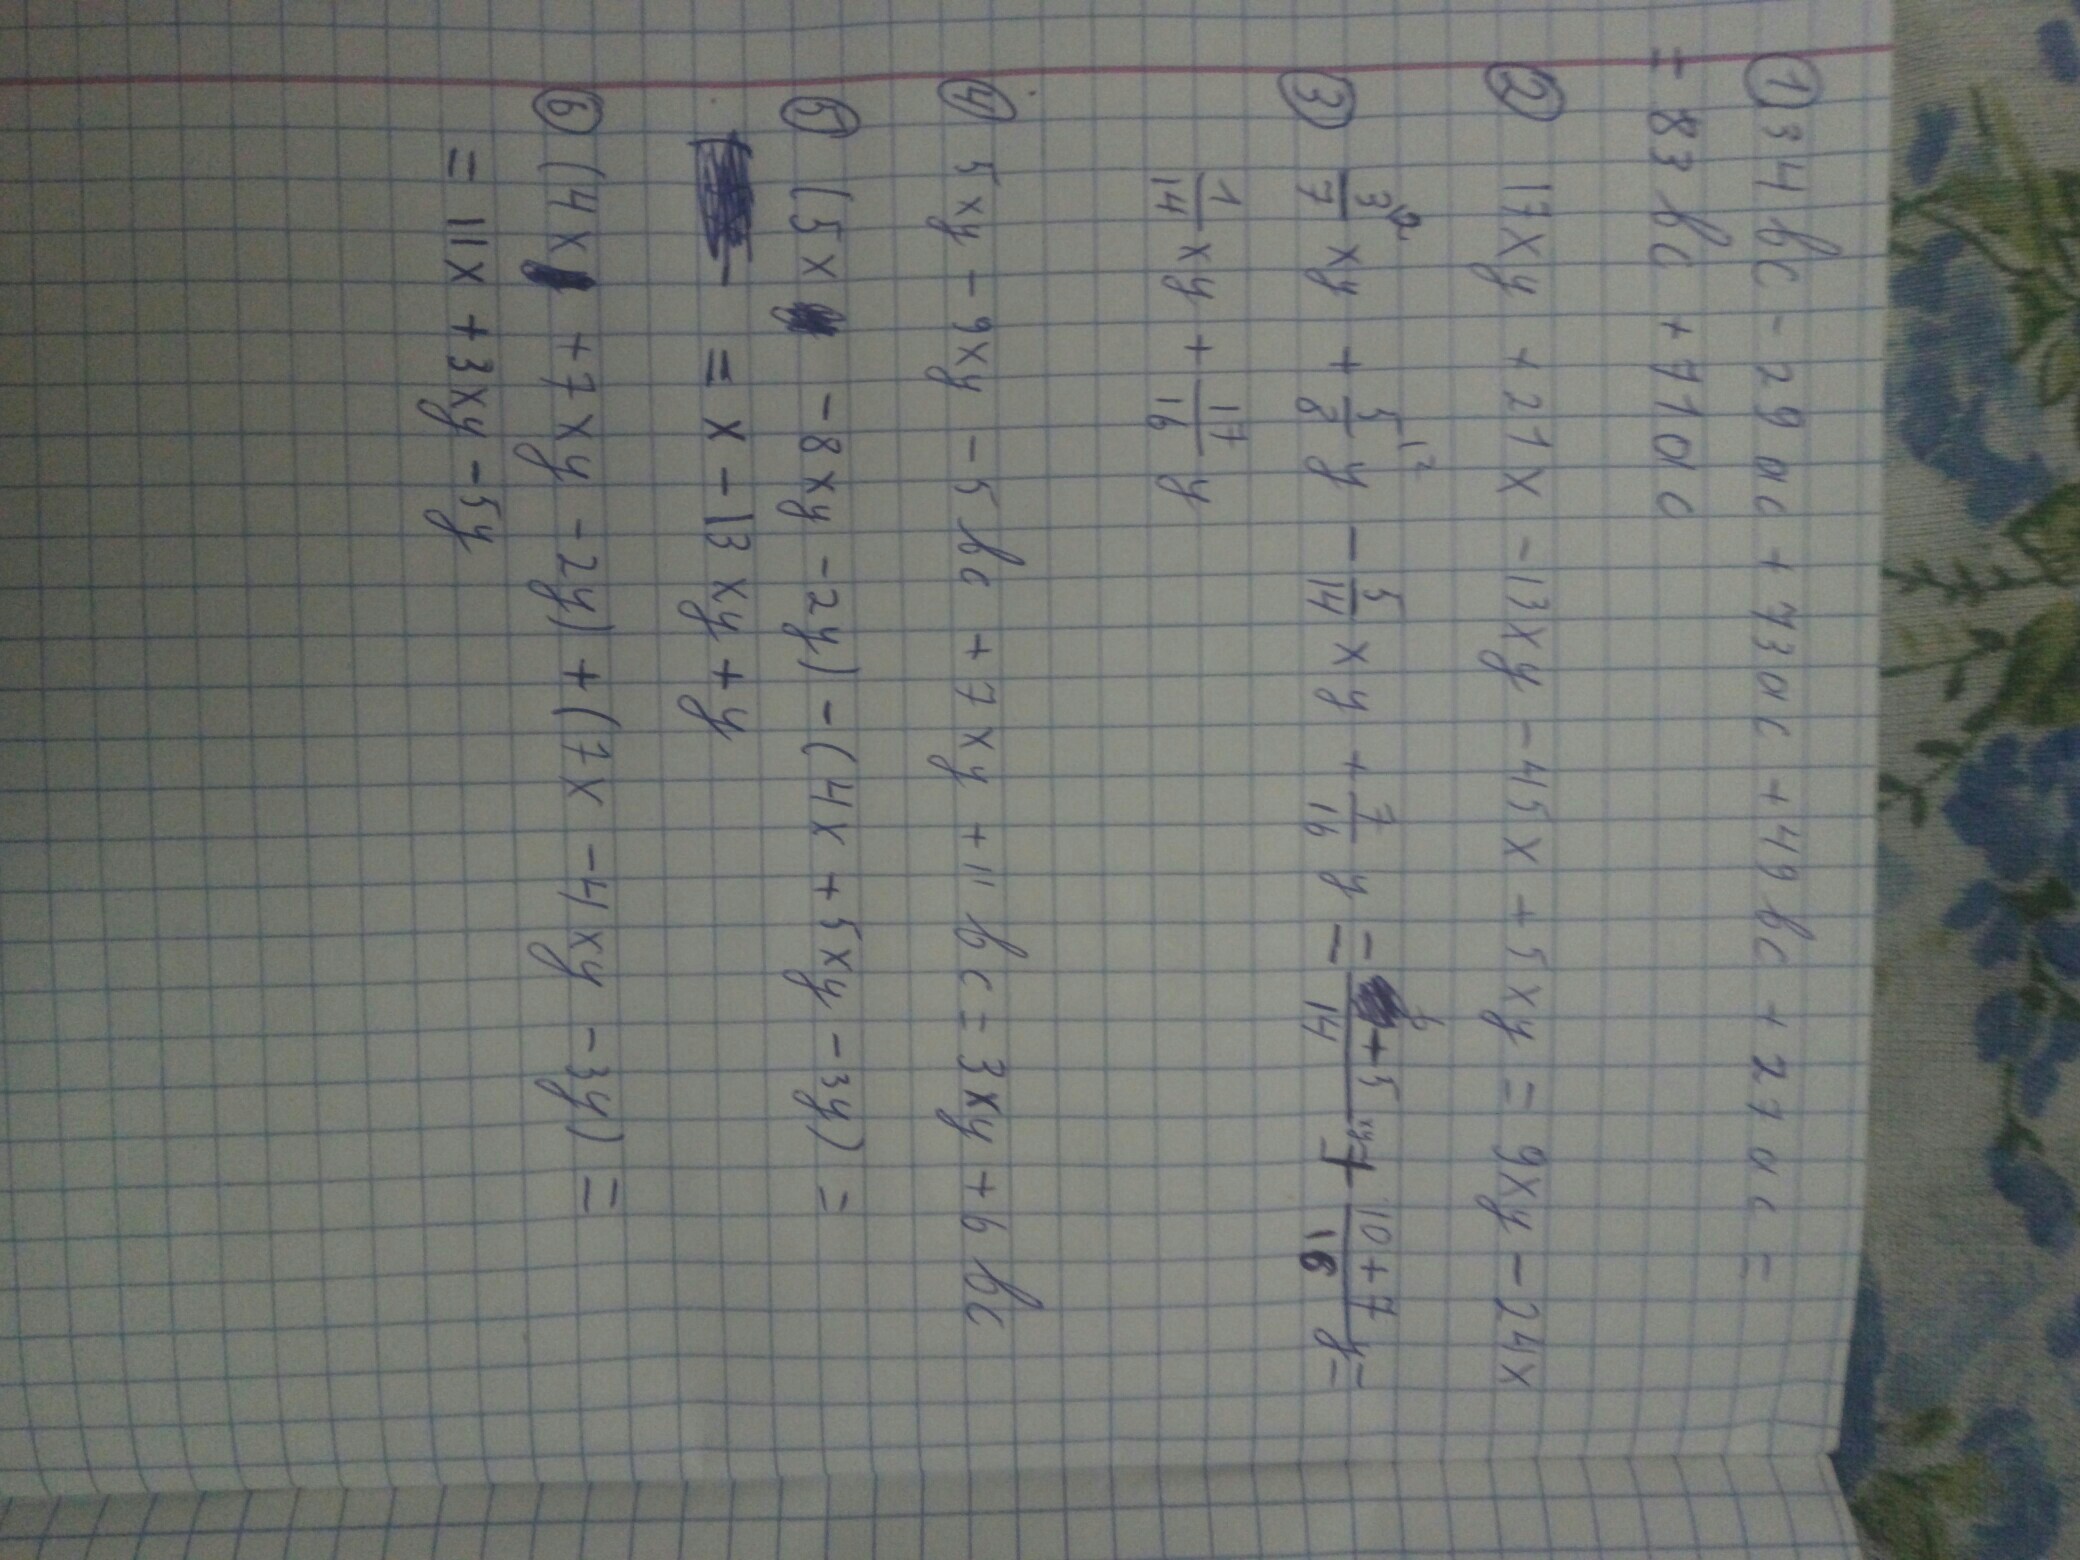 ① 34bc - 29ac + 73ac + 49bc + 27ac =
= 83bc + 71ac
② 17xy + 21x - 13xy - 45x + 5xy = 9xy - 24x
③ 3/7 xy + 5/8 y - 5/14 xy + 7/16 y = 6+5/14 xy + 10+7/16 y =
1/14 xy + 17/16 y
④ 5xy - 9xy - 5bc + 7xy + 11bc = 3xy + 6bc
⑤ (5x - 8xy - 2y) - (4x + 5xy - 3y) =
= x - 13xy + y
⑥ (4x + 7xy - 2y) + (7x - 4xy - 3y) =
= 11x + 3xy - 5y